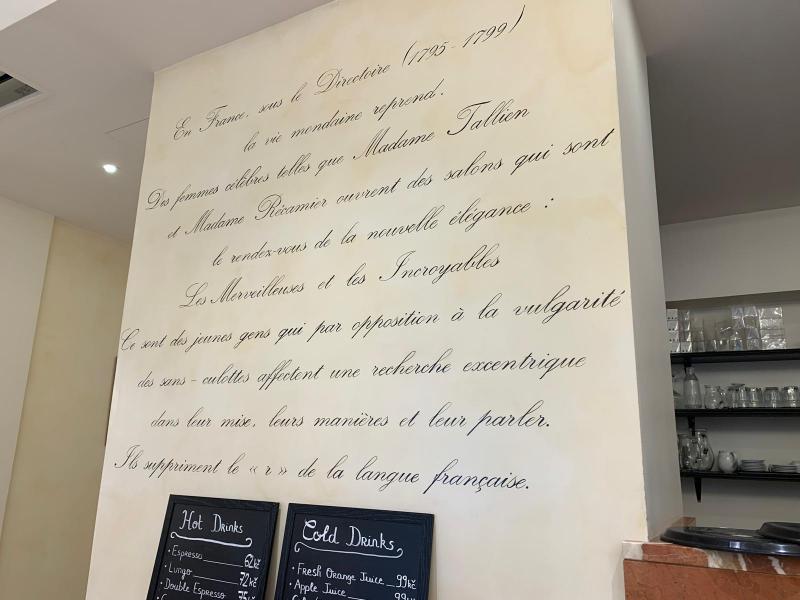 En France, sous le Directoire (1795-1799)
la vie mondaine reprend.
Des femmes célèbres telles que Madame Tallien
et Madame Récamier ouvrent des salons qui sont
le rendez-vous de la nouvelle élégance :
Les Merveilleuses et les Incroyables
Ce sont des jeunes gens qui par opposition à la vulgarité
des sans-culottes affectent une recherche excentrique
dans leur mise, leurs manières et leur parler.
Ils suppriment le « r » de la langue française.
Hot Drinks
• Espresso 62 kč
• Lungo 72 kč
• Double Espresso 75 kč
Cold Drinks
• Fresh Orange Juice 99 kč
• Apple Juice 99 kč